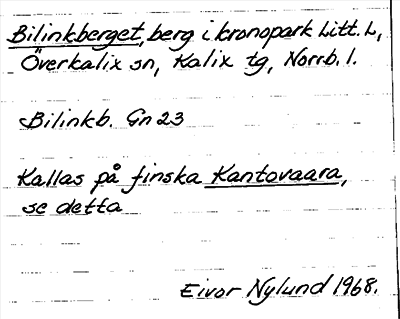 Bilinkberget, berg i kronopark Litt. L,
Överkalix sn, Kalix tg, Norrb. l.
Bilinkb. Gn 23
Kallas på finska Kantovaara,
se detta
Eivor Nylund 1968.